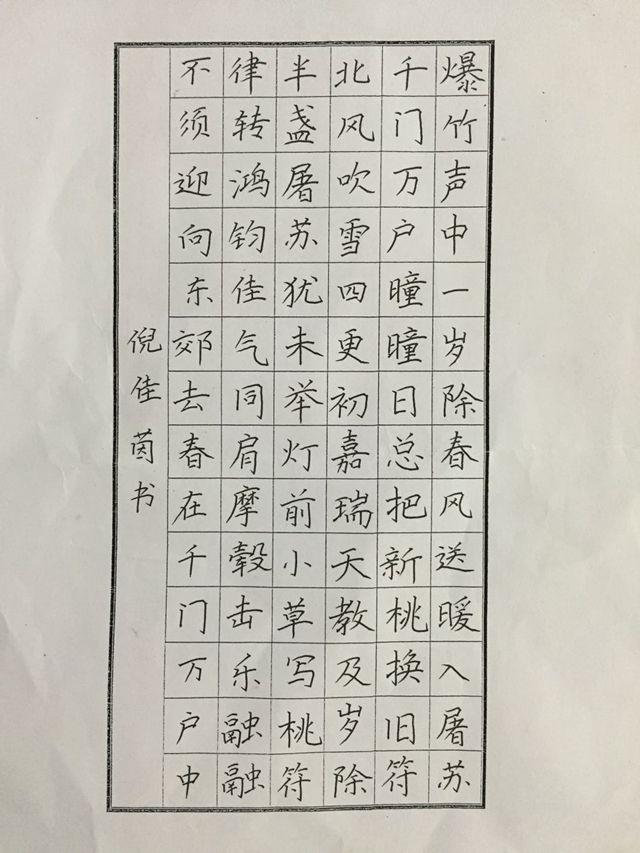 爆竹声中一岁除春风送暖入屠苏
千门万户曈曈日总把新桃换旧符
北风吹雪四更初嘉瑞天教及岁除
半盏屠苏犹未举灯前小草写桃符
律转鸿钧佳气同肩摩毂击乐融融
不须迎向东郊去春在千门万户中
倪佳茵书